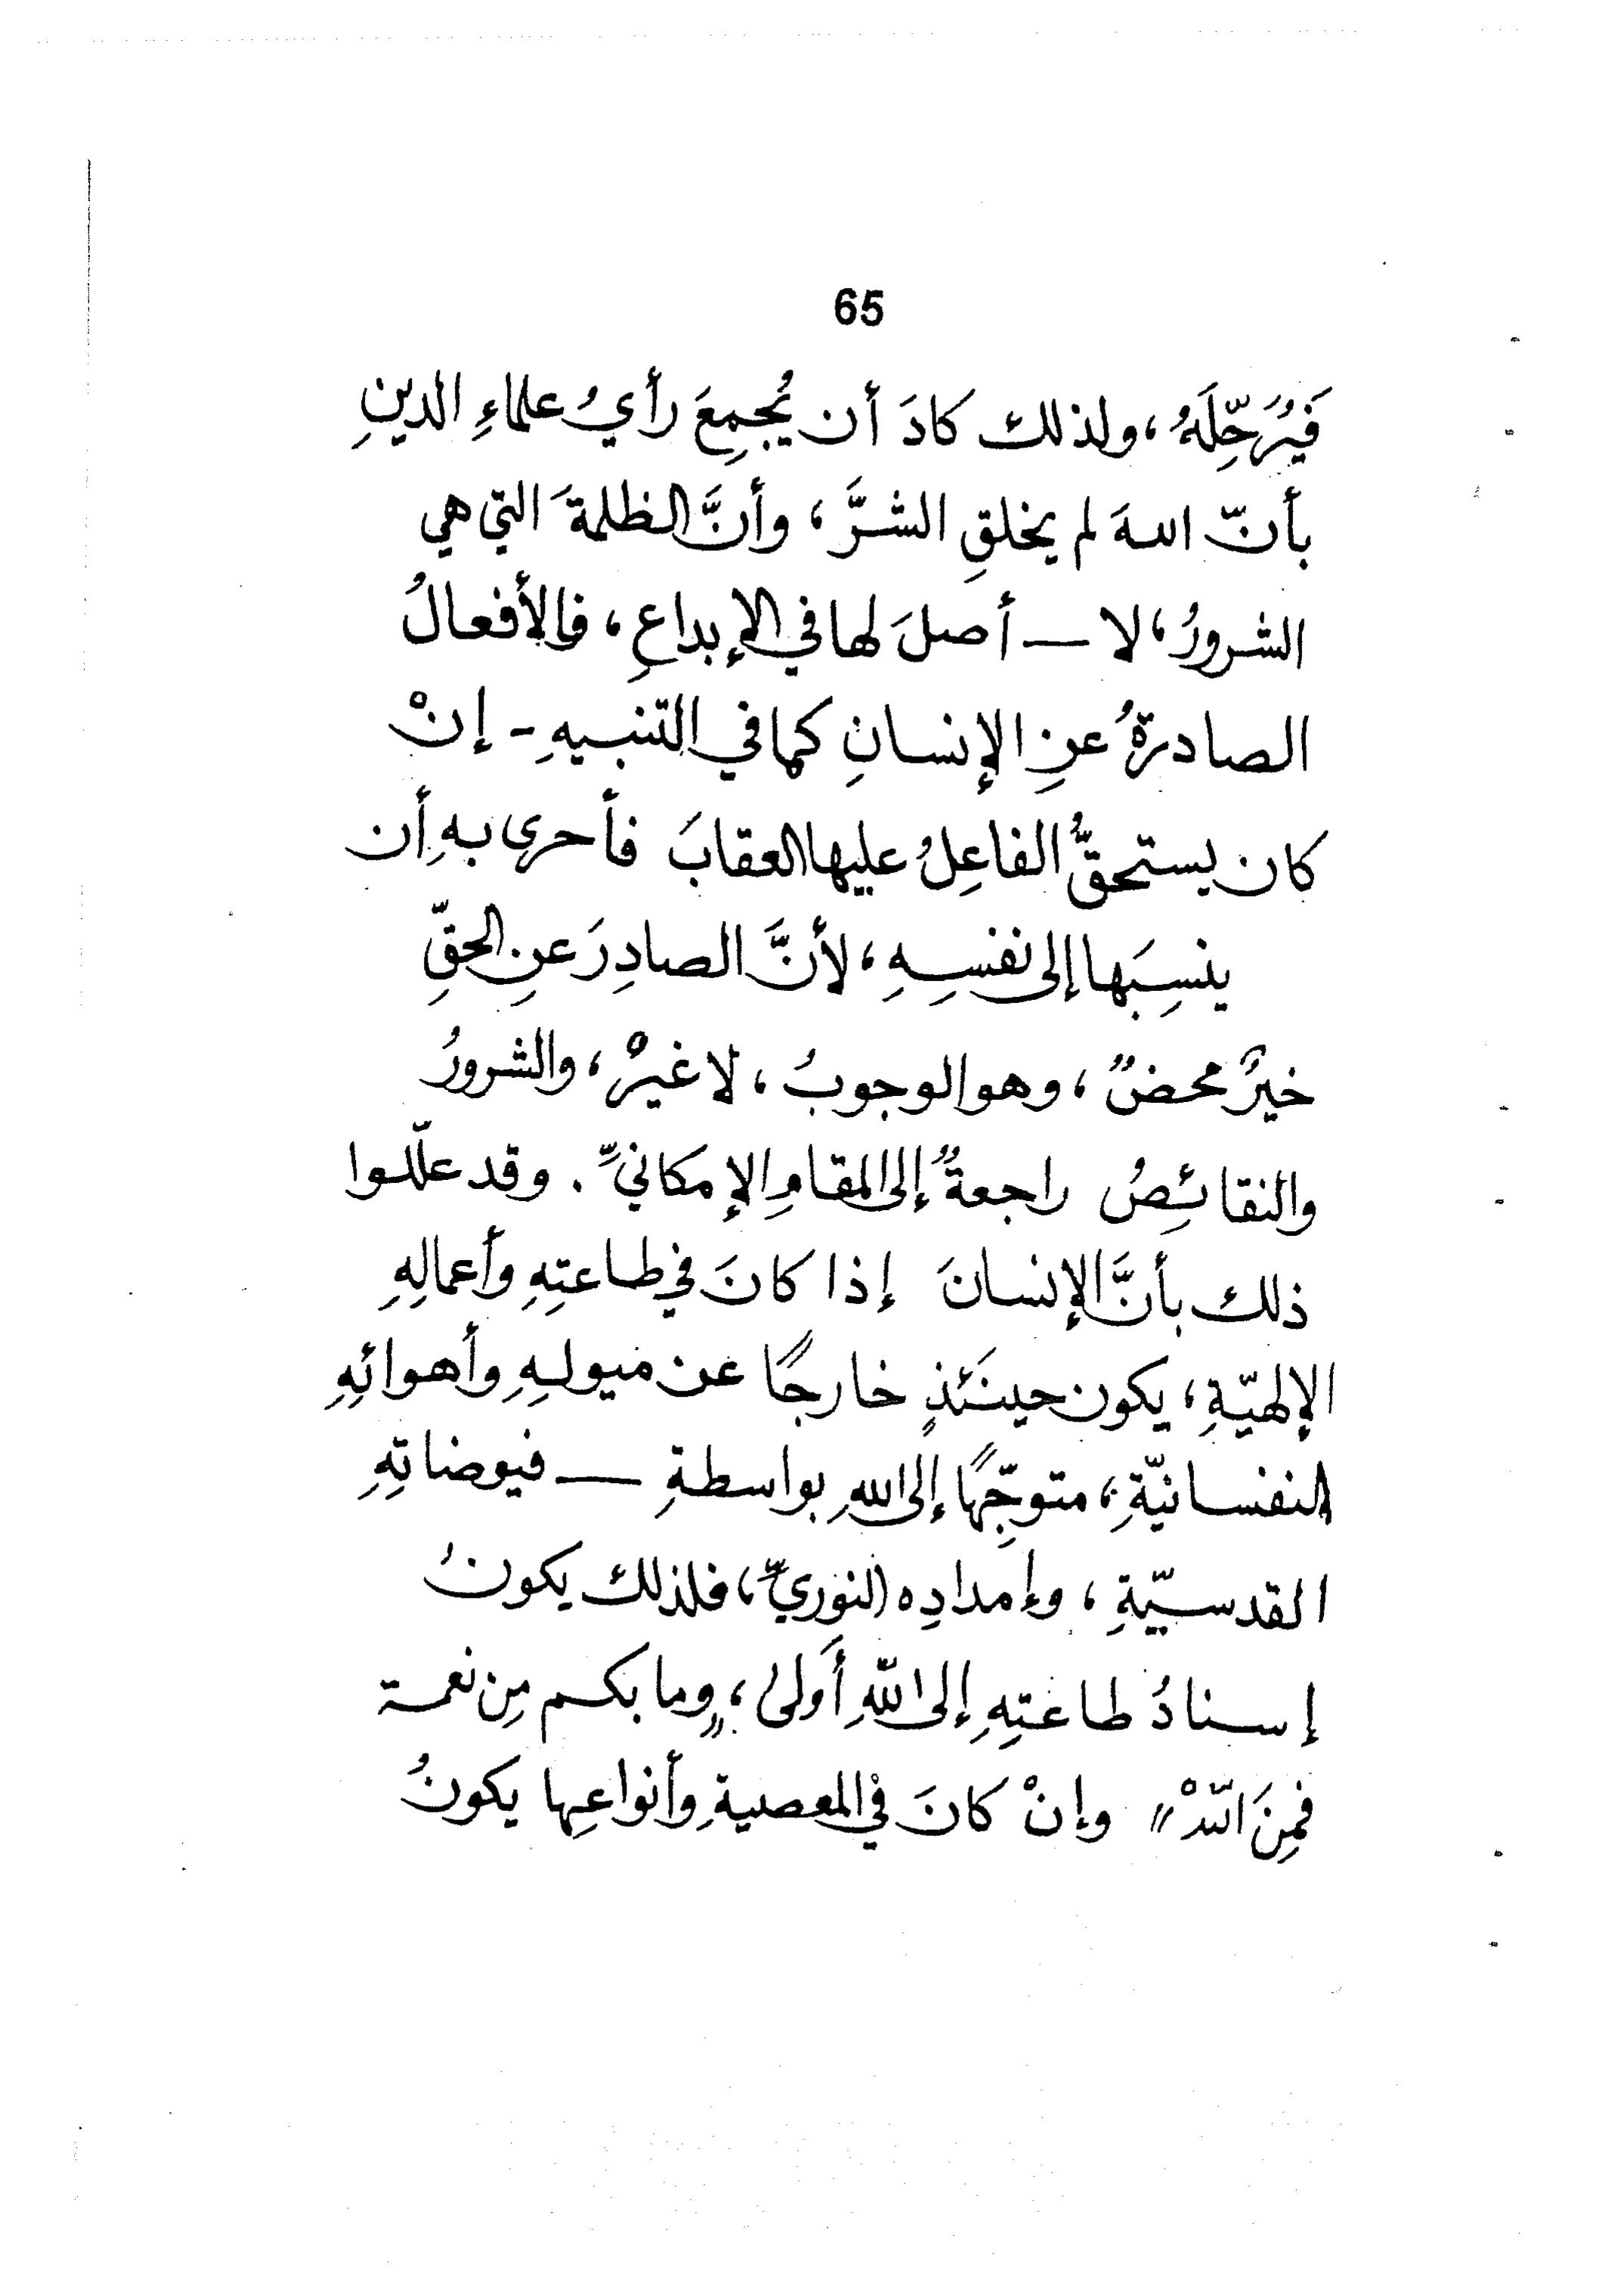 65
فَيُرَحِّلَهُ، ولذلك كادَ أن يُجمِعَ رأيُ علماءِ الدينِ
بأنّ اللهَ لم يخلقِ الشرَّ، وأنَّ الظلمةَ التي هي
الشرورُ، لا — أصلَ لها في الإبداعِ، فالأفعالُ
الصادرةُ عنِ الإنسانِ كما في التنبيهِ - إنْ
كان يستحقُّ الفاعِلُ عليها العقابَ فأحرى بهِ أن
ينسِبَها إلى نفسِهِ، لأنَّ الصادِرَ عنِ الحقِّ
خيرٌ محضٌ، وهو الوجوبُ، لا غيرُْ، والشرورُ
والنقائصُ راجعةٌ إلى المقامِ الإمكانيِّ. وقد علّلوا
ذلك بأنَّ الإنسانَ إذا كانَ في طاعتِهِ وأعمالِهِ
الإلهيّةِ، يكون حينَئذٍ خارجًا عن ميولهِ وأهوائِهِ
النفسانيّةِ، متوجِّهًا إلى اللهِ بواسطةِ — فيوضاتِهِ
القدسيّةِ، وإمدادِه النوريِّ، فلذلك يكونُ
إسنادُ طاعتِهِ إلى اللّهِ أَولى، "وما بكم مِن نعمة
فمِنَ اللّهْ" وإنْ كانَ في المعصيةِ وأنواعِها يكونُ